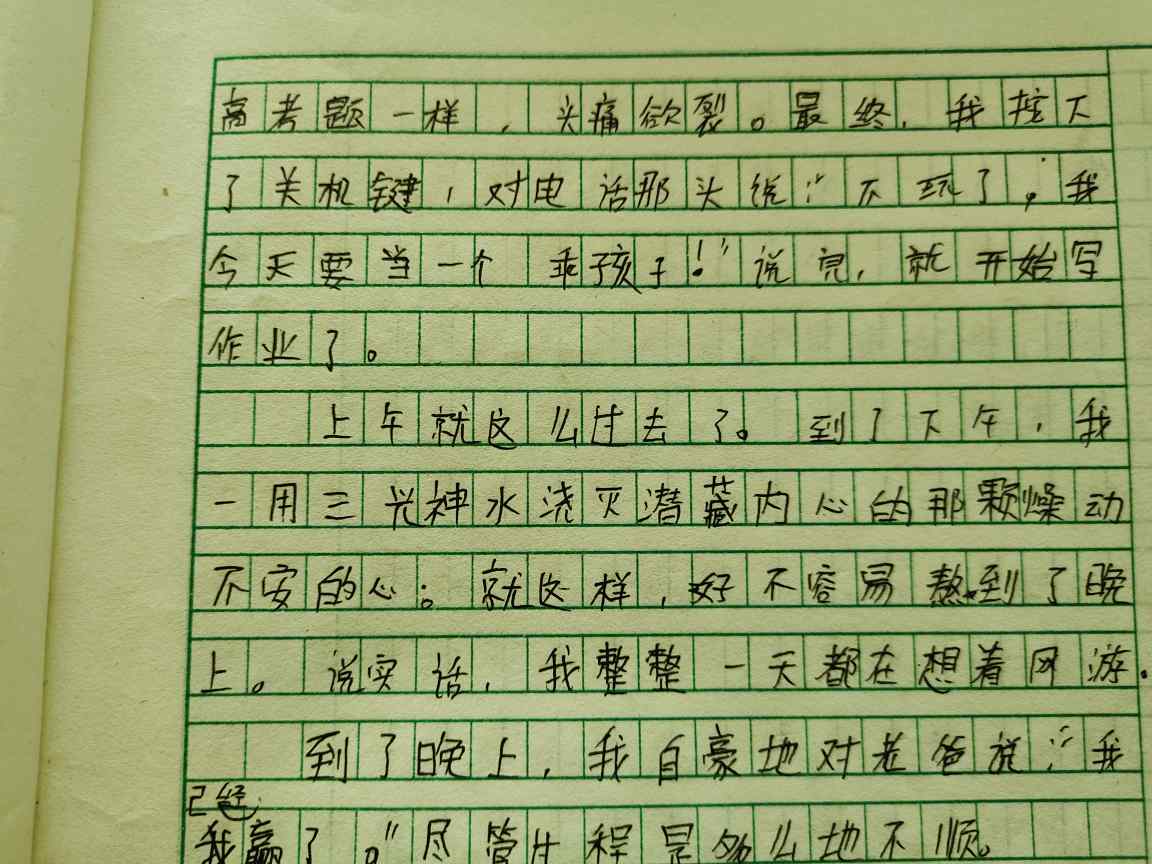 高考题一样,头痛欲裂。最终,我按下
了关机键,对电话那头说:“不玩了,我
今天要当一个乖孩子!”说完,就开始写
作业了。
上午就这么过去了。到了下午,我
一用三光神水浇灭潜藏内心的那颗燥动
不安的心。就这样,好不容易熬到了晚
上。说实话,我整整一天都在想着网游.
到了晚上,我自豪地对老爸说:“我
已经
我赢了。”尽管过程是多么地不顺。